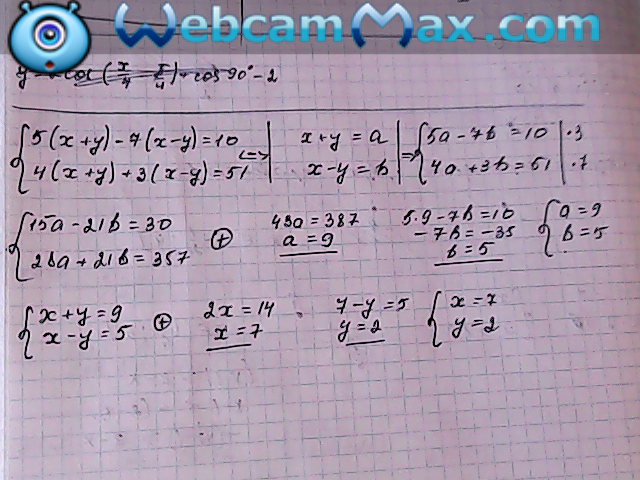 WebcamMax.com
cos(x/4 - π/4) + cos 90° - 2
{ 5(x+y) - 7(x-y) = 10
4(x+y) + 3(x-y) = 51 <=> | x+y = a
x-y = b | => { 5a - 7b = 10 | ·3
4a + 3b = 51 | ·7
{ 15a - 21b = 30
28a + 21b = 357 ⊕ 43a = 387
a = 9
5·9 - 7b = 10
-7b = -35
b = 5
{ a = 9
b = 5
{ x + y = 9
x - y = 5 ⊕ 2x = 14
x = 7
7 - y = 5
y = 2
{ x = 7
y = 2